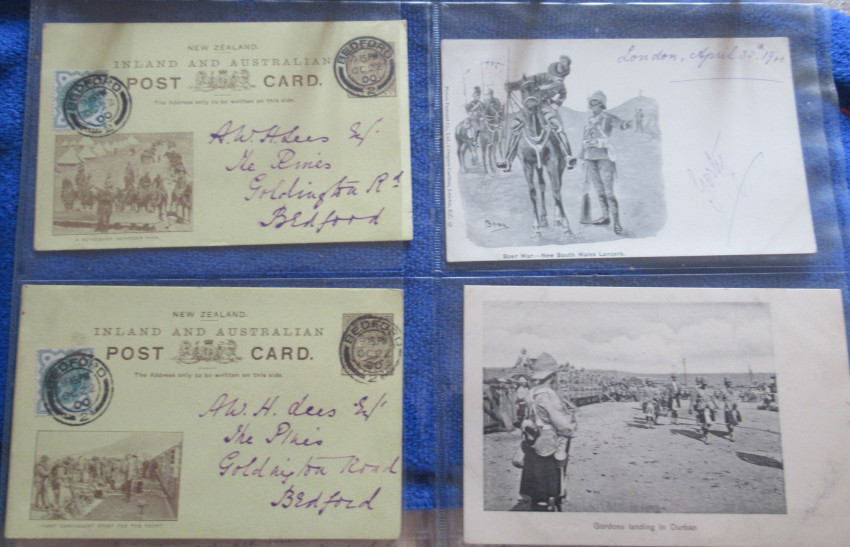 NEW ZEALAND.
INLAND AND AUSTRALIAN
POST CARD.
The Address only to be written on this side.
BEDFORD
OC 22
00
2
BEDFORD
00
2
A.W.H. Lees Esq
The Pines
Goldington Rd
Bedford
London, April 30th 1900
Boer War.—New South Wales Lancers.
NEW ZEALAND.
INLAND AND AUSTRALIAN
POST CARD.
The Address only to be written on this side.
BEDFORD
00
2
BEDFORD
00
2
A.W.H. Lees Esq
The Pines
Goldington Road
Bedford
FIRST CONTINGENT START FOR THE FRONT.
Gordons landing in Durban